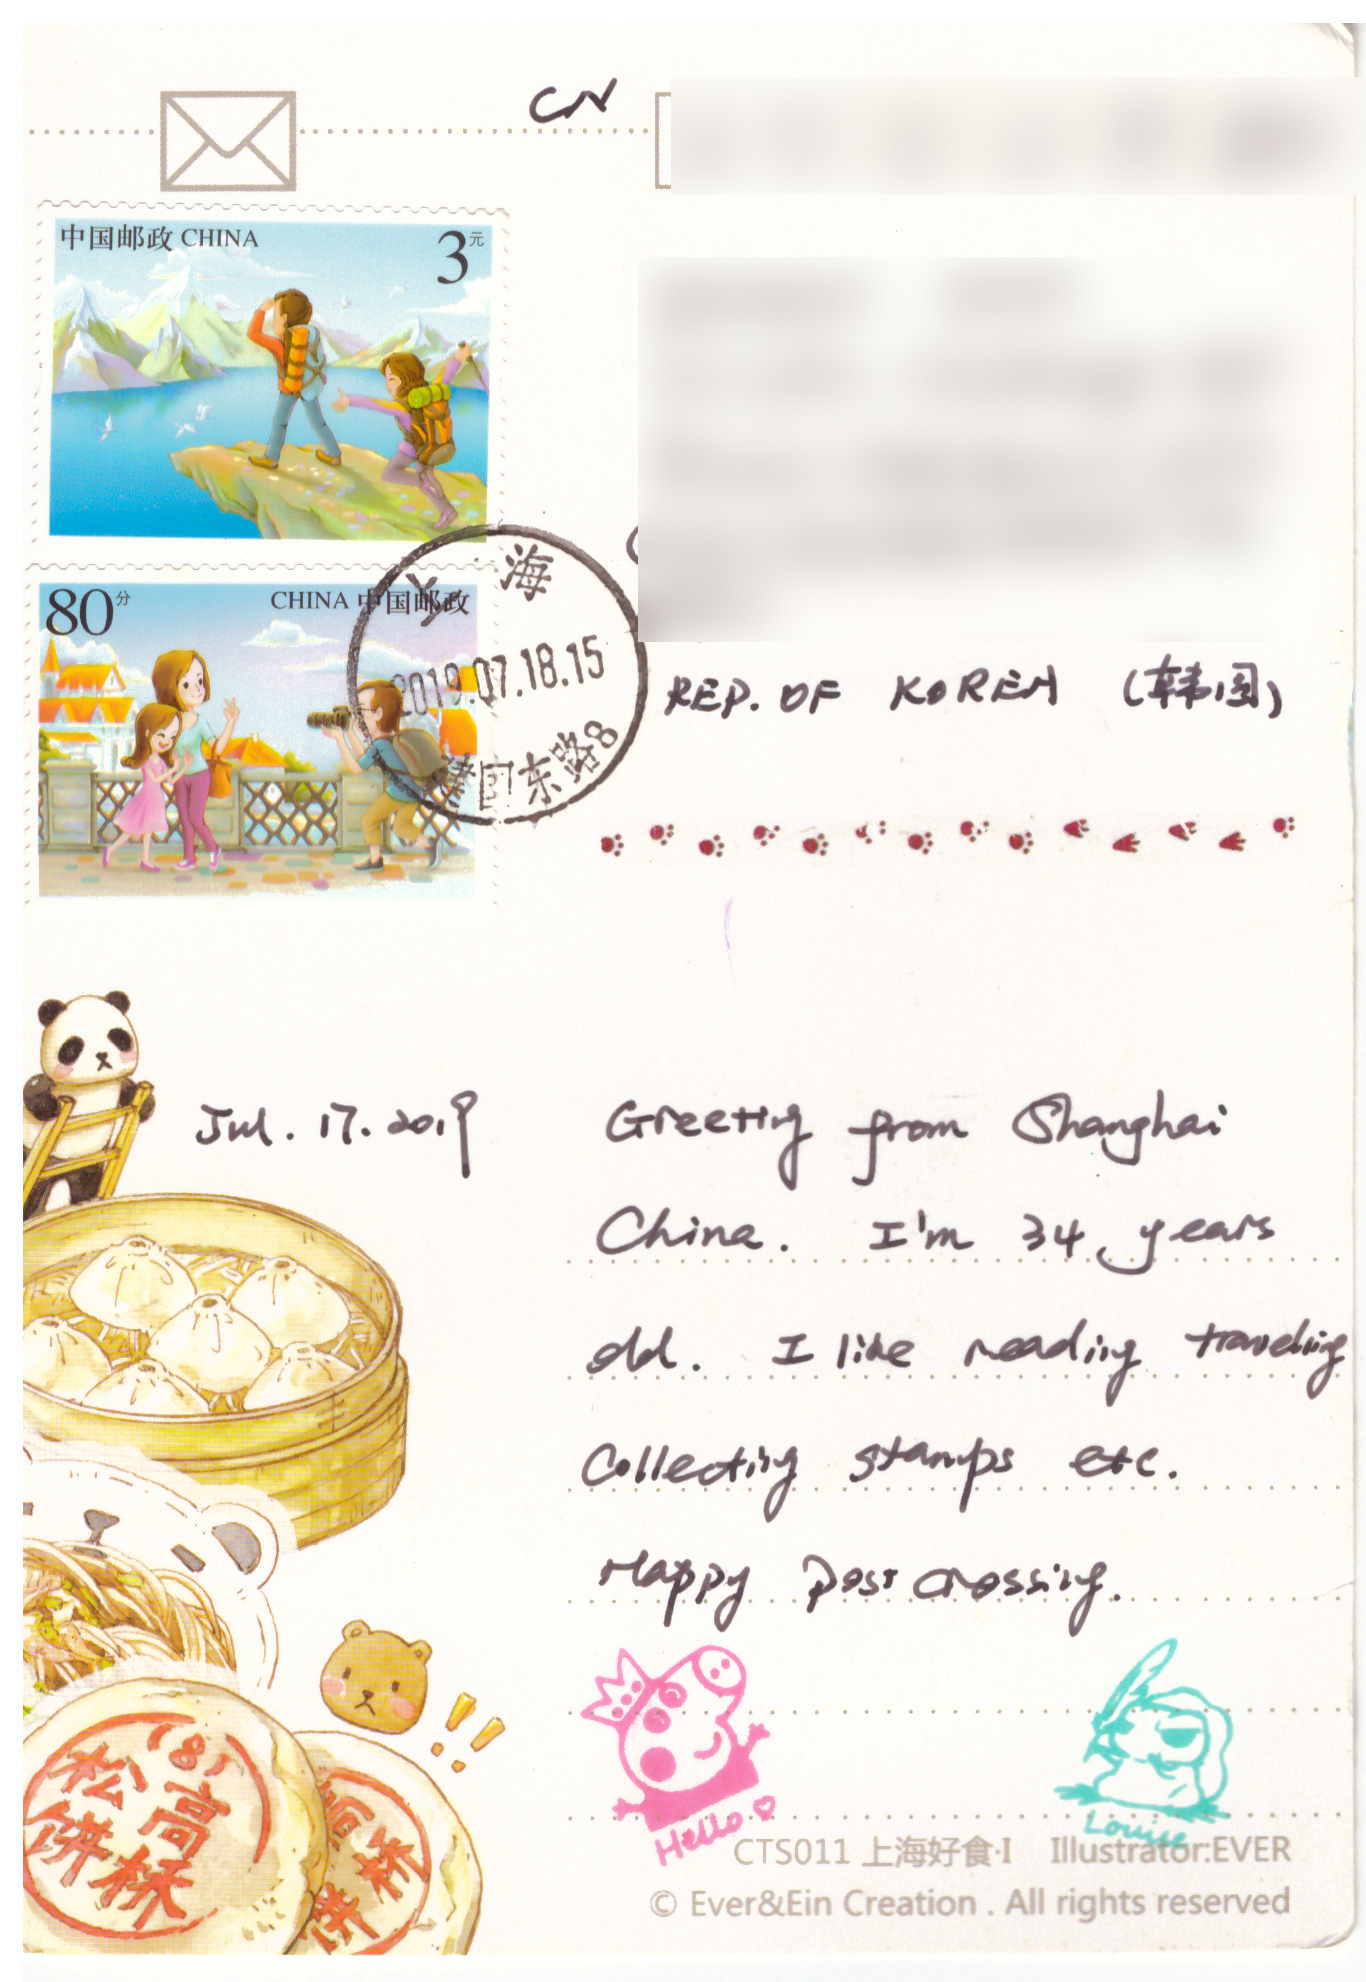 CN
中国邮政 CHINA 3元
80分 CHINA 中国邮政
上海
2019.07.18.15
国东路8
REP. OF KOREA (韩国)
Jul. 17. 2019
Greeting from Shanghai
China. I'm 34 years
old. I like reading traveling
Collecting stamps etc.
Happy postcrossing.
Hello
Louise
(8)
松高
饼桥
桥
饼
CTS011 上海好食·I Illustrator:EVER
© Ever&Ein Creation . All rights reserved